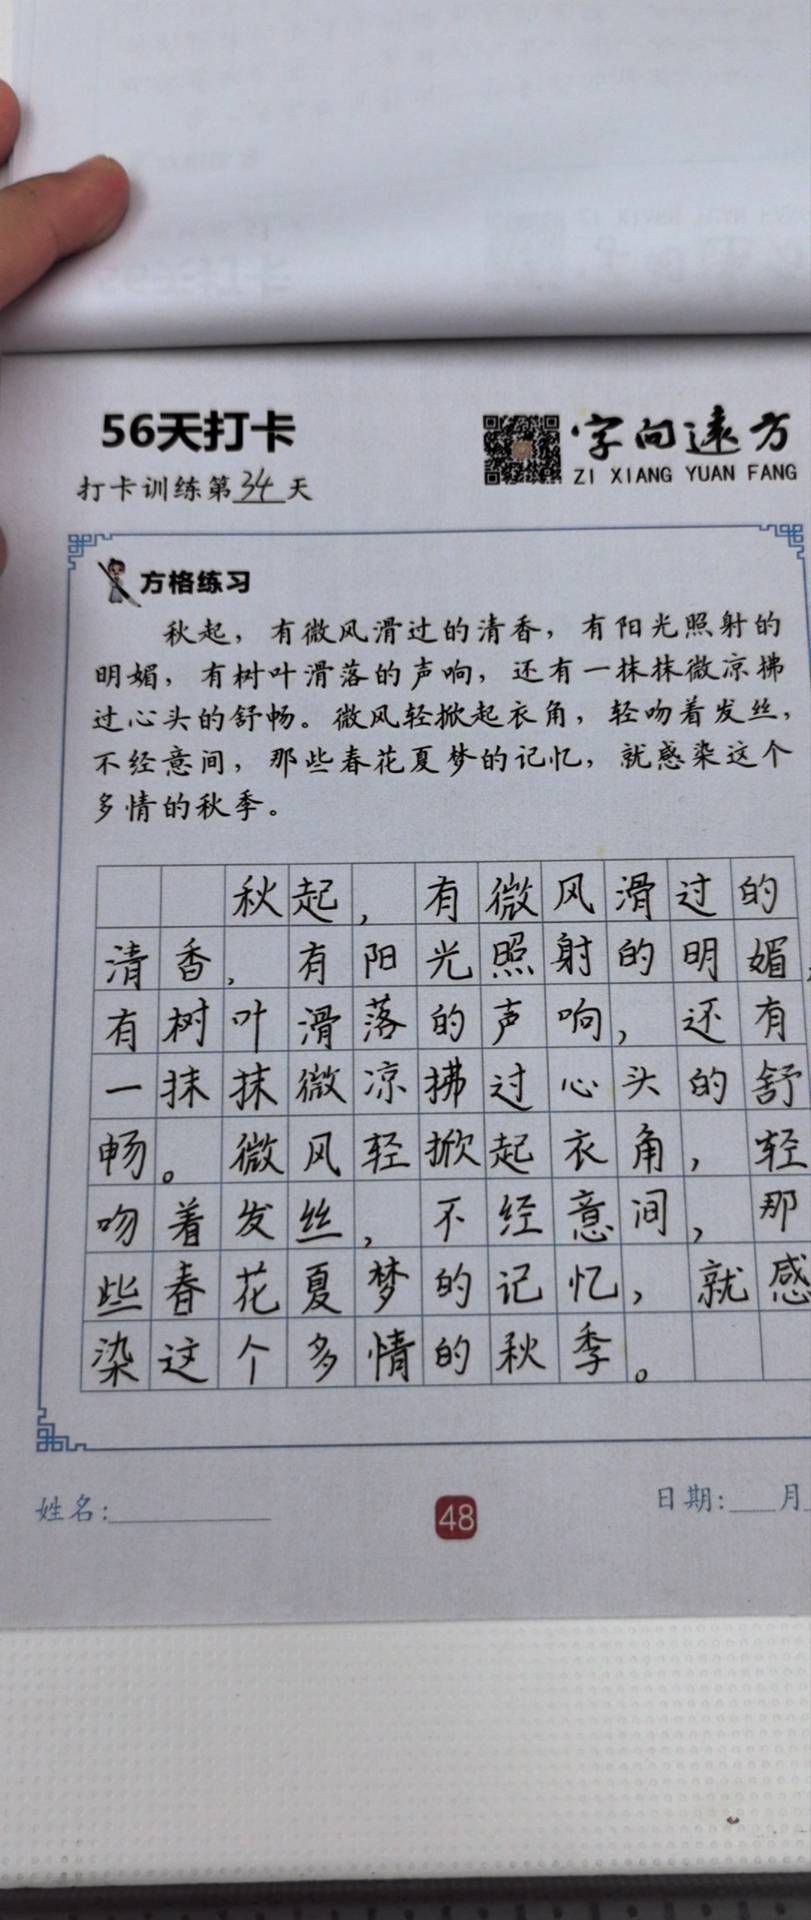 56天打卡
字向远方
ZI XIANG YUAN FANG
打卡训练第34天
方格练习
秋起，有微风滑过的清香，有阳光照射的
明媚，有树叶滑落的声响，还有一抹抹微凉拂
过心头的舒畅。微风轻掀起衣角，轻吻着发丝，
不经意间，那些春花夏梦的记忆，就感染这个
多情的秋季。
秋起，有微风滑过的
清香，有阳光照射的明媚，
有树叶滑落的声响，还有
一抹抹微凉拂过心头的舒
畅。微风轻掀起衣角，轻
吻着发丝，不经意间，那
些春花夏梦的记忆，就感
染这个多情的秋季。
姓名:
48
日期: 月